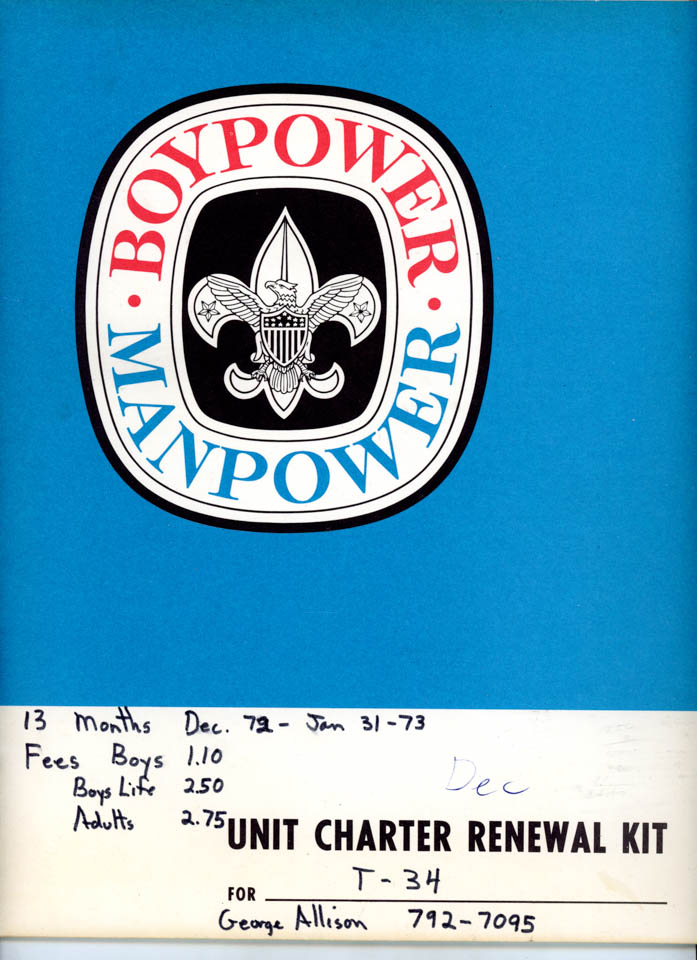 · BOYPOWER ·
MANPOWER
13 Months Dec. 72 - Jan 31-73
Fees Boys 1.10
Boys Life 2.50
Adults 2.75
Dec
UNIT CHARTER RENEWAL KIT
FOR T-34
George Allison 792-7095